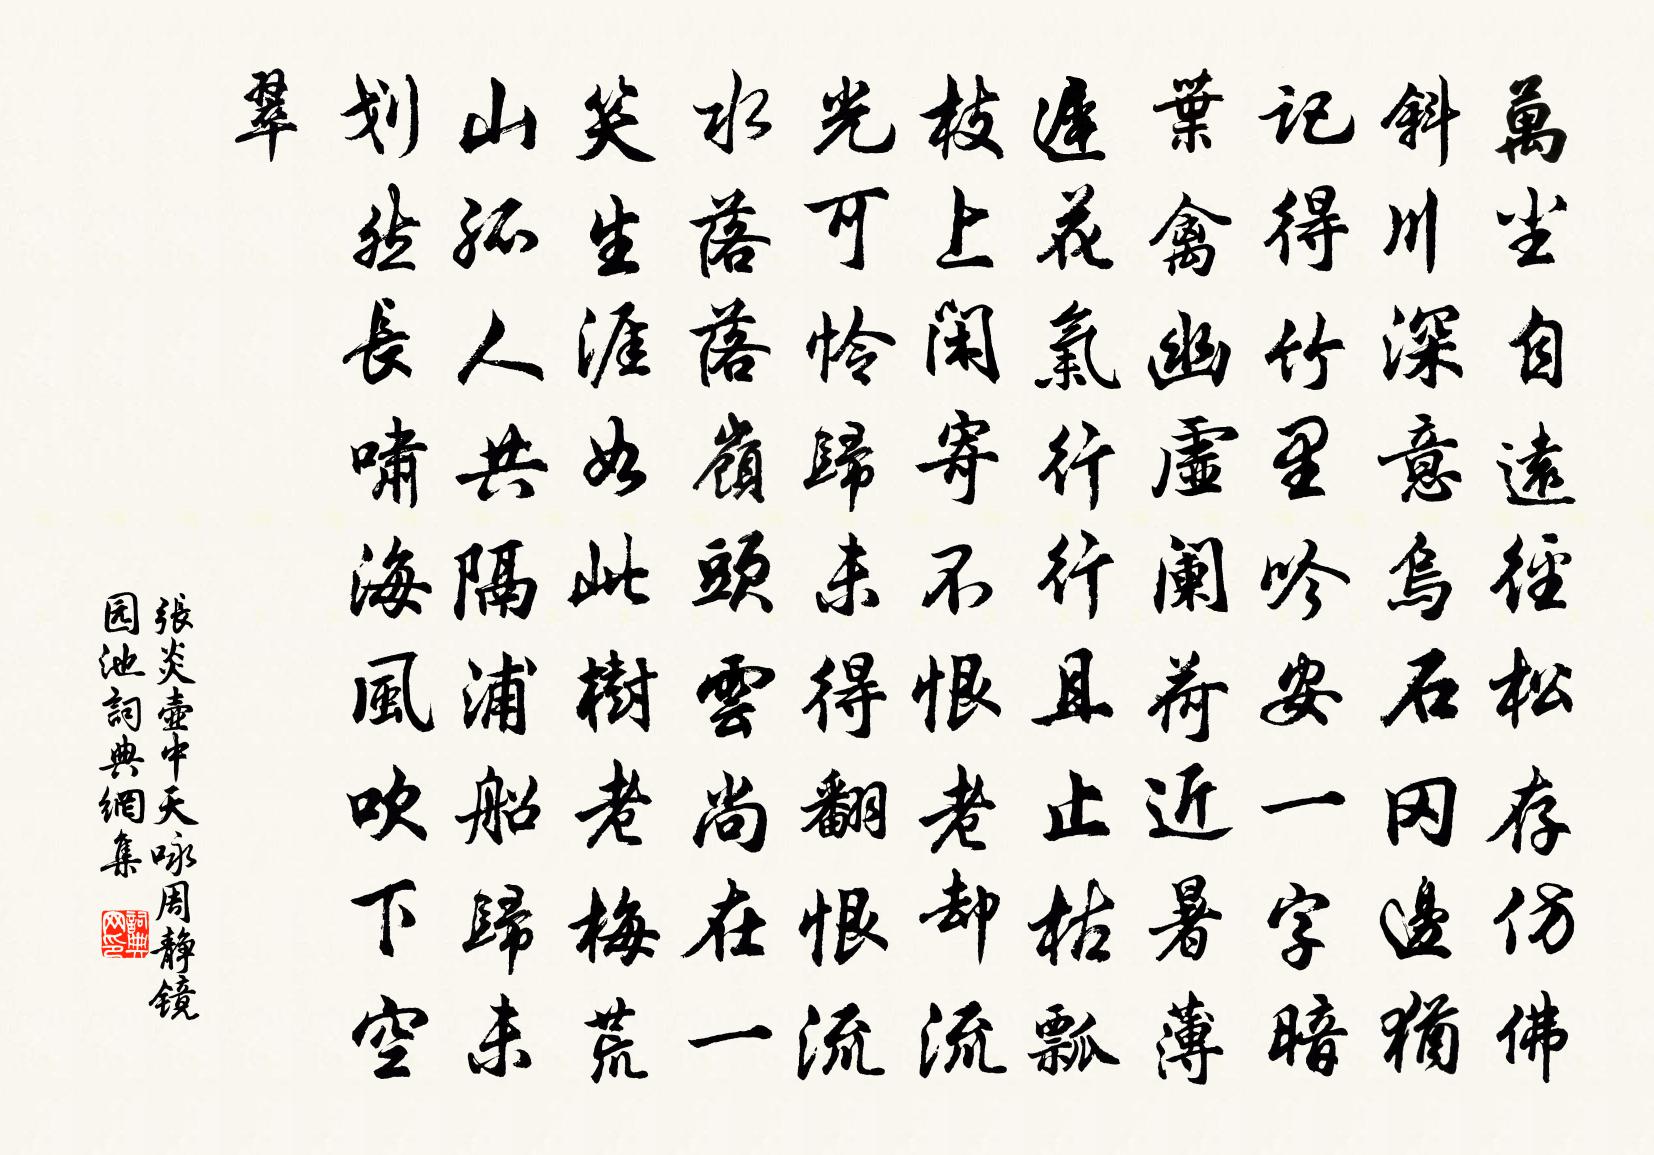 萬尘自遠徑松存仿佛
斜川深意烏石冈邊猶
記得竹里吟安一字暗
葉禽幽虛阑荷近暑薄
遲花氣行行且止枯瓢
枝上闲寄不恨老却流
光可怜歸未得翻恨流
水落落嶺頭雲尚在一
笑生涯如此樹老梅荒
山孤人共隔浦船歸未
划然長嘯海風吹下空
翠
張炎壺中天咏周静镜
园池詞典網集
詞典
网印